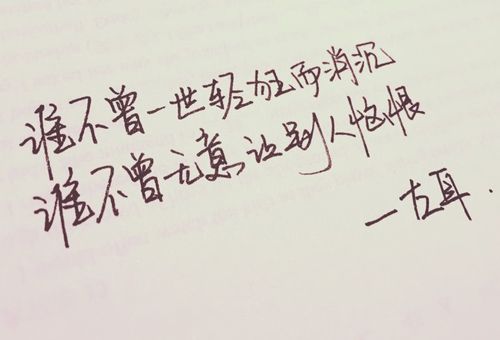 谁不曾一世轻狂而消沉
谁不曾无意让别人恼恨
一左耳.